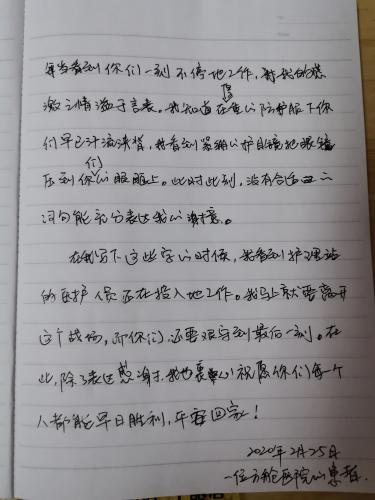 每当看到你们一刻不停地工作，对我的感
激之情溢于言表。我知道在厚重的防护服下你
们早已汗流浃背，我看到紧绷的护目镜把眼镜
压到你们的眼眶上。此时此刻，没有合适的
词句能充分表达我的谢意。
在我写下这些字的时候，我看到护理站
的医护人员正在投入地工作。我马上就要离开
这个战场，而你们还要坚守到最后一刻。在
此，除了表达感谢，我也衷心的祝愿你们每一个
人都能早日胜利，平安回家！
2020年2月25日
一位方舱医院的患者